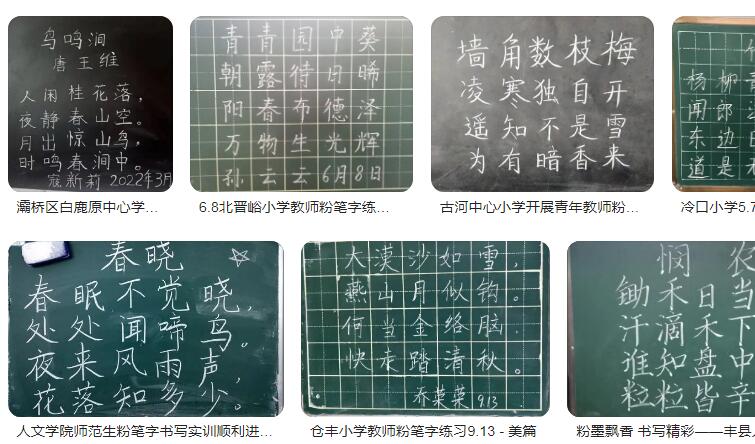 鸟鸣涧
唐 王维
人闲桂花落，
夜静春山空。
月出惊山鸟，
时鸣春涧中。
寇新莉 2022年3月
青青园中葵
朝露待日晞
阳春布德泽
万物生光辉
孙云云6月8日
墙角数枝梅
凌寒独自开
遥知不是雪
为有暗香来
杨柳
闻郎
东边
道是
灞桥区白鹿原中心学...
6.8北晋峪小学教师粉笔字练...
古河中心小学开展青年教师粉...
冷口小学5.7
春晓
春眠不觉晓，
处处闻啼鸟。
夜来风雨声，
花落知多少。
大漠沙如雪，
燕山月似钩。
何当金络脑.
快走踏清秋。
乔荣荣 9.13
悯农
锄禾日当
汗滴禾下
谁知盘中
粒粒皆辛
人文学院师范生粉笔字书写实训顺利进...
仓丰小学教师粉笔字练习9.13 - 美篇
粉墨飘香 书写精彩——丰县